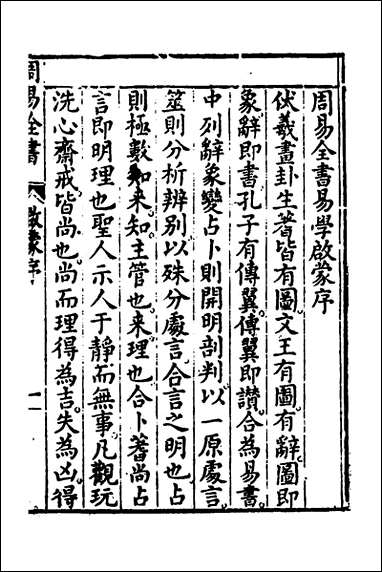 周易全書易學啟蒙序
伏羲畫卦生蓍皆有圖文王有圖有辭圖即
象辭即書孔子有傳翼傳翼即讚合為易書
中列辭象變占卜則開明剖判以一原處言
筮則分析辨別以殊分處言合言之明也占
則極數知來知主管也來理也合卜蓍尚占
言即明理也聖人示人于靜而無事凡觀玩
洗心齋戒皆尚也尚而理得為吉失為凶得
周易全書 啟蒙序 一